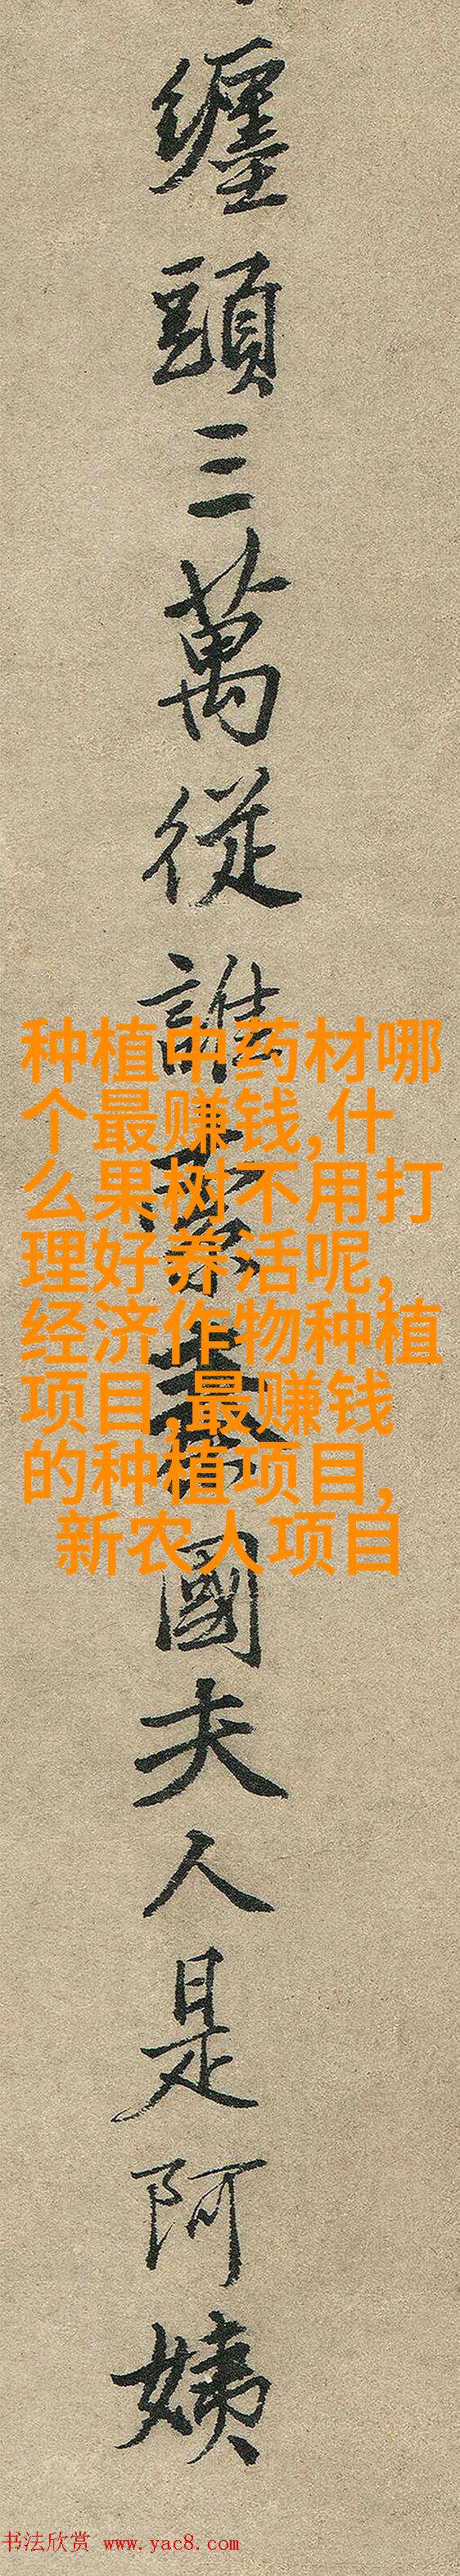 纏頭三萬從誰國夫人是阿姨
种植中药材哪
个最赚钱,什
么果树不用打
理好养活呢,
经济作物种植
项目,最赚钱
的种植项目,
新农人项目
书法欣赏 www.yac8.com